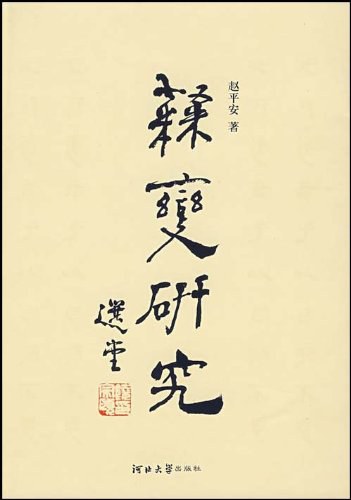 赵平安 著
隸變研究
選堂
河北大学出版社